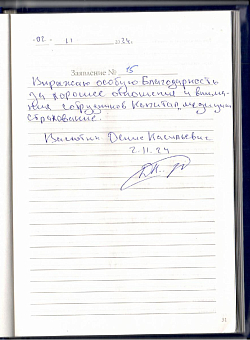 "02" 11 2024.
Заявление № 75
Выражаю особую благодарность
за хорошее отношения и внима-
ния сотрудников Капитал медицин
страхование.
Денис Васильевич
2.11.24
31